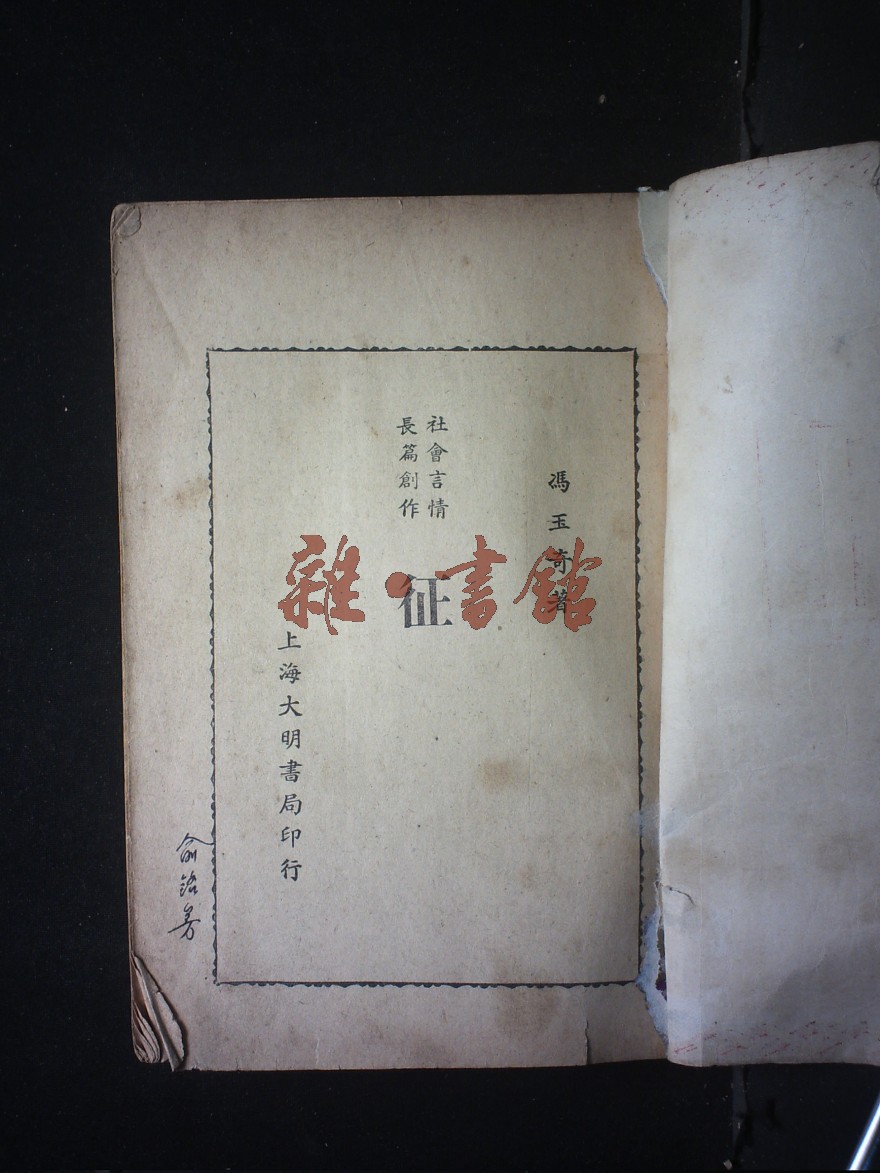 馮玉奇著
社會言情
長篇創作
征
上海大明書局印行
雜·書館